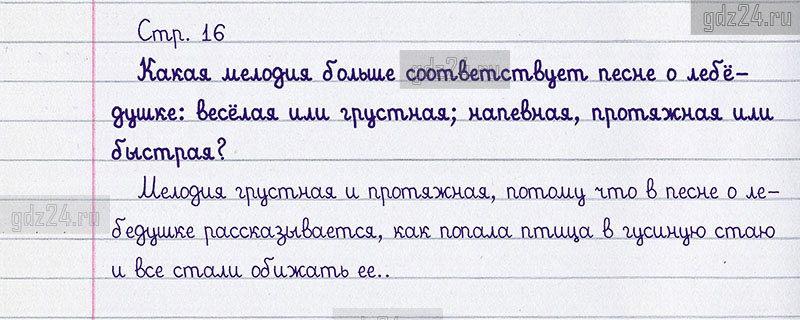 gdz24.ru
Стр. 16
Какая мелодия больше соответствует песне о лебё-
душке: весёлая или грустная; напевная, протяжная или
быстрая?
Мелодия грустная и протяжная, потому что в песне о ле-
gdz24.ru
бедушке рассказывается, как попала птица в гусиную стаю
и все стали обижать ее..